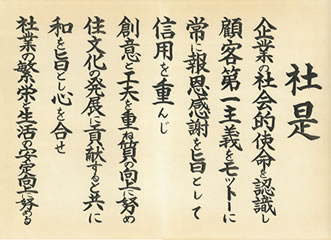 社是
企業の社会的使命を認識し
顧客第一主義をモットーに
常に報恩感謝を旨として
信用を重んじ
創意と工夫を重ね質の向上に努め
住文化の発展に貢献すると共に
和を旨とし心を合せ
社業の繁栄と生活の安定向上に努める